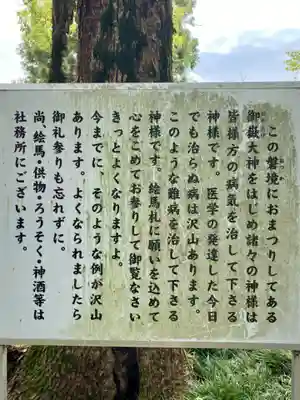 この磐境におまつりしてある
御嶽大神をはじめ諸々の神様は
皆様方の病氣を治して下さる
神様です。医学の発達した今日
でも治らぬ病は沢山あります。
このような難病を治して下さる
神様です。絵馬札に願いを込めて
心をこめてお参りして御覧なさい
きっとよくなりますよ。
今までに、そのような例が沢山
あります。よくなられましたら
御礼参りも忘れずに。
尚、絵馬・供物・ろうそく・神酒等は
社務所にございます。